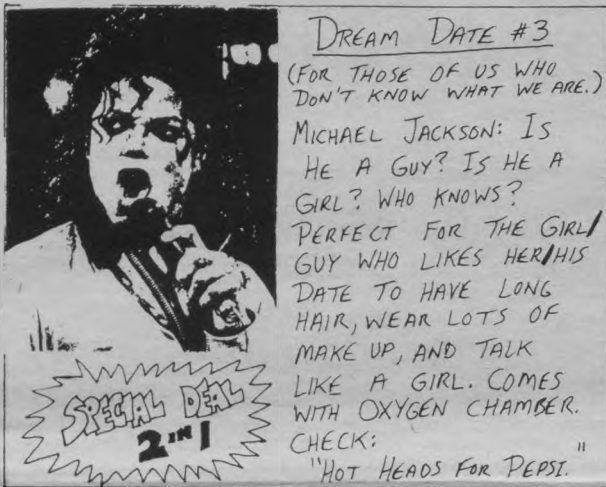 DREAM DATE #3
(FOR THOSE OF US WHO
DON'T KNOW WHAT WE ARE.)
MICHAEL JACKSON: IS
HE A GUY? IS HE A
GIRL? WHO KNOWS?
PERFECT FOR THE GIRL/
GUY WHO LIKES HER/HIS
DATE TO HAVE LONG
HAIR, WEAR LOTS OF
MAKE UP, AND TALK
LIKE A GIRL. COMES
WITH OXYGEN CHAMBER.
CHECK:
"HOT HEADS FOR PEPSI."
SPECIAL DEAL
2 IN 1